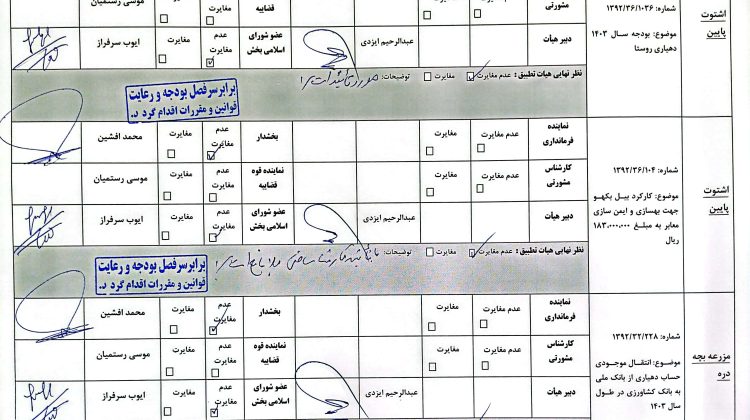 اشتوت
پایین
شماره: ۱۳۹۲/۳۶/۱۰۳۶
موضوع: بودجه سال ۱۴۰۳
دهیاری روستا
مشورتی
قضاییه
موسی رستمیان
دبیر هیأت
عبدالرحیم ایزدی
عضو شورای
اسلامی بخش
عدم
مغایرت
مغایرت
ایوب سرفراز
نظر نهایی هیات تطبیق: عدم مغایرت مغایرت توضیحات:
برابر سرفصل بودجه و رعایت
قوانین و مقررات اقدام گردد.
اشتوت
پایین
شماره: ۱۳۹۲/۳۶/۱۰۴
موضوع: کارکرد بیل بکهو
جهت بهسازی و ایمن سازی
معابر به مبلغ ۱۸۳.۰۰۰.۰۰۰
ریال
نماینده
فرمانداری
عدم مغایرت
مغایرت
بخشدار
عدم
مغایرت
مغایرت
محمد افشین
کارشناس
مشورتی
عدم مغایرت
مغایرت
نماینده قوه
قضاییه
عدم
مغایرت
مغایرت
موسی رستمیان
دبیر هیأت
عبدالرحیم ایزدی
عضو شورای
اسلامی بخش
عدم
مغایرت
مغایرت
ایوب سرفراز
نظر نهایی هیات تطبیق: عدم مغایرت مغایرت توضیحات:
برابر سرفصل بودجه و رعایت
قوانین و مقررات اقدام گردد.
مزرعه بچه
دره
شماره: ۱۳۹۲/۳۲/۲۲۸
موضوع: انتقال موجودی
حساب دهیاری از بانک ملی
به بانک کشاورزی در طول
سال ۱۴۰۳
نماینده
فرمانداری
عدم مغایرت
مغایرت
بخشدار
عدم
مغایرت
مغایرت
محمد افشین
کارشناس
مشورتی
عدم مغایرت
مغایرت
نماینده قوه
قضاییه
عدم
مغایرت
مغایرت
موسی رستمیان
دبیر هیأت
عبدالرحیم ایزدی
عضو شورای
اسلامی بخش
عدم
مغایرت
مغایرت
ایوب سرفراز